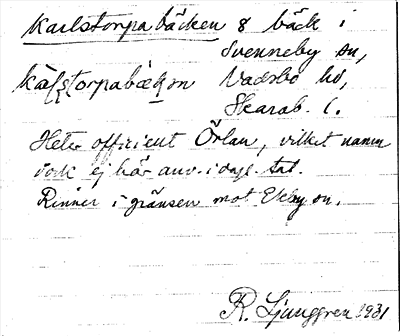 Karlstorpabäcken 8 bäck i
Svenneby sn,
kàl̨storpabækən Vadsbo hd,
Skarab. l.
Heter officient Örlan, vilket namn
dock ej här anv. i dagl. tal.
Rinner i gränsen mot Ekby sn.
R. Ljunggren 1931